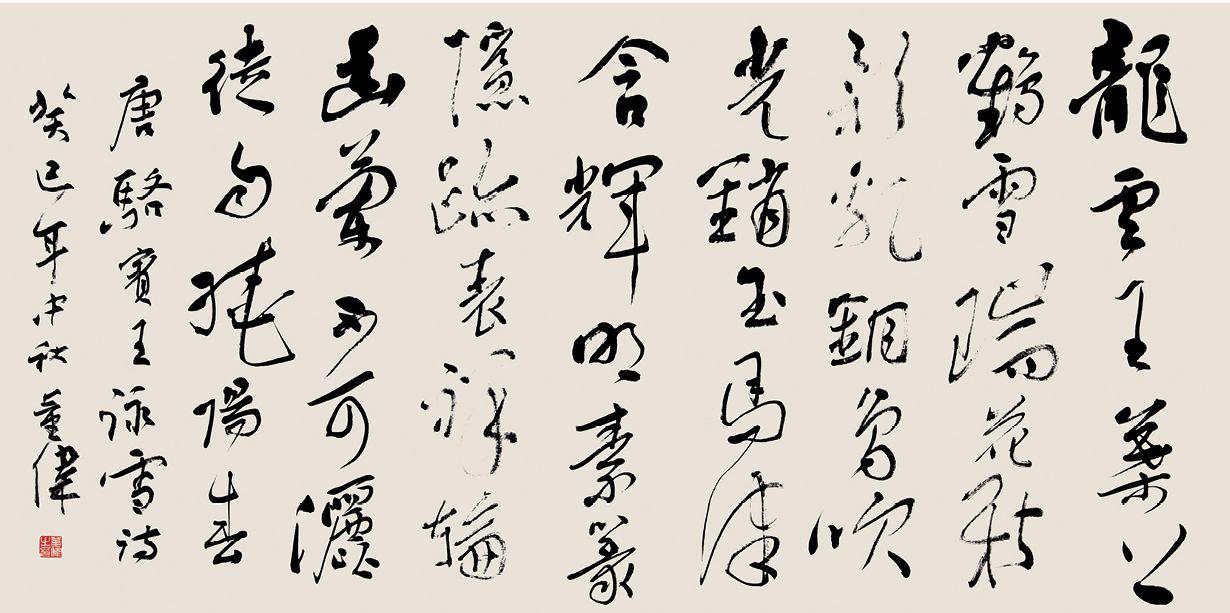 龍雲玉葉上
鶴雪瑞花新
影亂銅烏吹
光銷玉馬津
含輝明素篆
隱跡表祥輪
幽蘭不可儷
徒自繞陽春
唐駱賓王詠雪詩
癸巳年中秋董偉